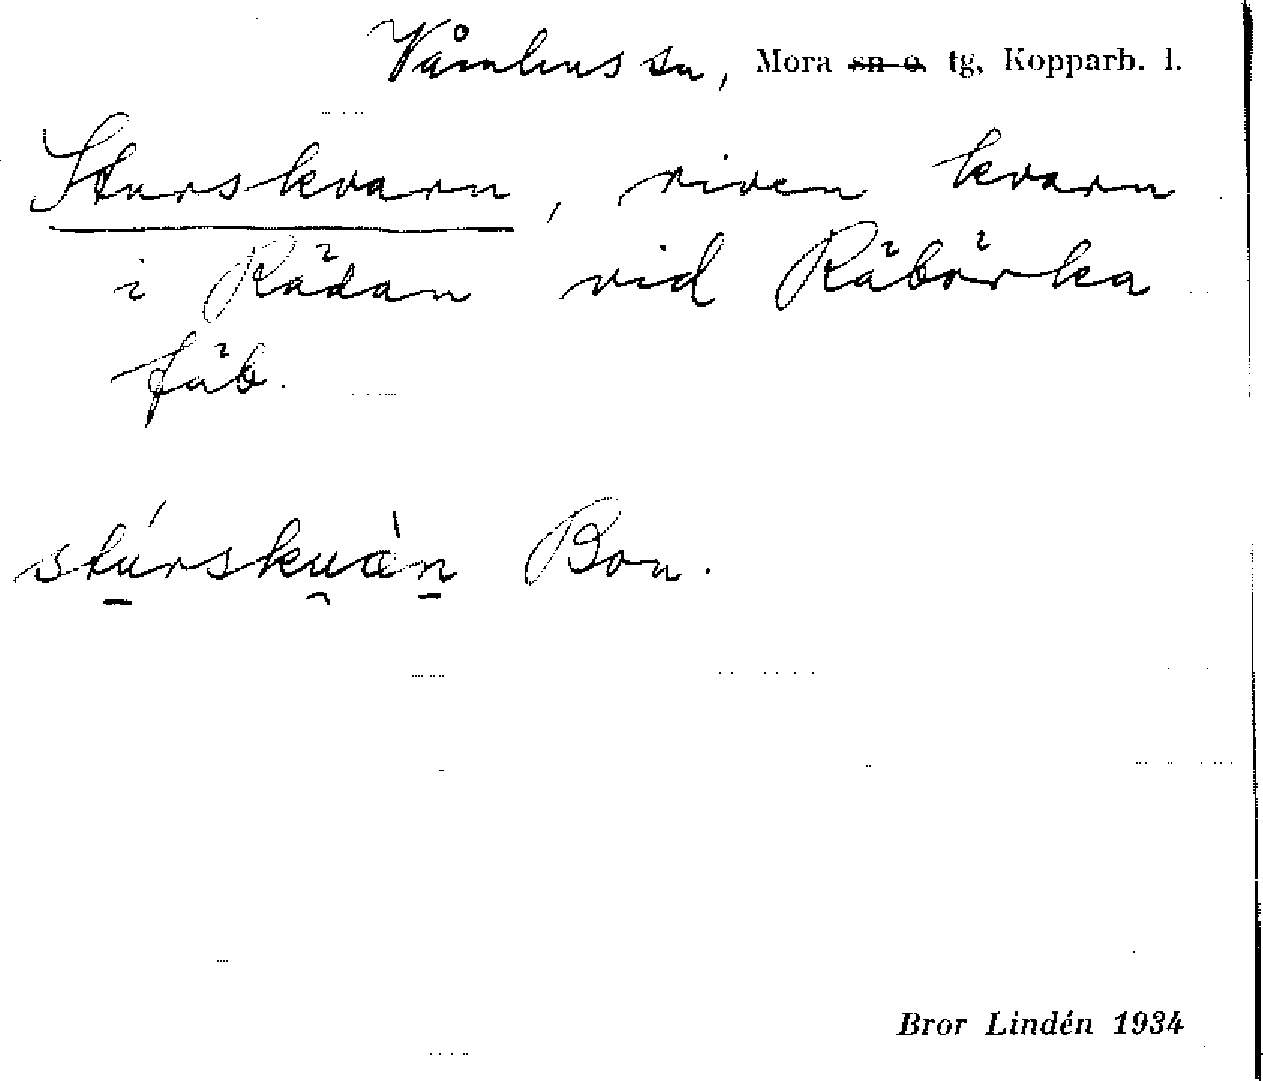 Våmhus sn, Mora sn o. tg, Kopparb. l.
Sturskvarn, riven kvarn
i Rädan vid Räbörka
fäb.
stu̱´rsku̯àn̠ Bon.
Bror Lindén 1934